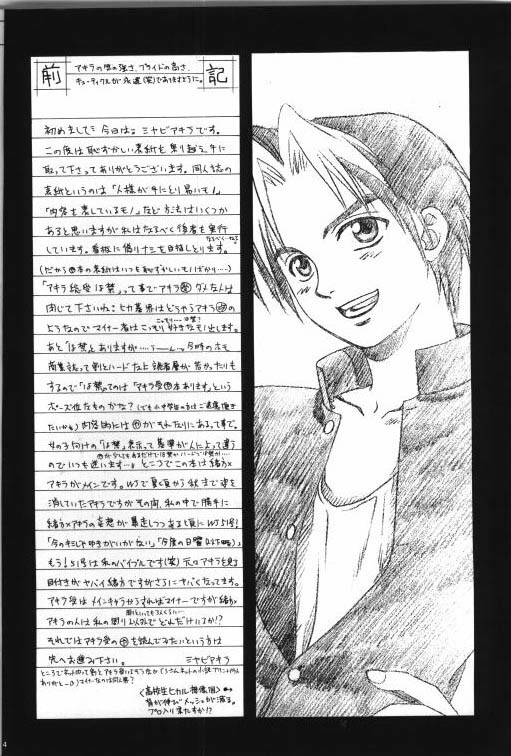 前記
アキラの胃の強さ、プライドの高さ、
キューティクルが永遠(笑)でありますように。
初めまして＝今日は。ミヤビアキラです。
この度は恥ずかしい表紙を乗り越え、手に
取って下さってありがとうございます。同人誌の
表紙というのは「人様が手にとり易いもノ」
「内容を表しているモノ」など方法はいくつか
あると思いますが私はなるべく後者を実行
なるべくーねて
しています。看板に偽りナシを目指しとります。
(だから本の表紙はいつも恥ずかしいモノばかり…)
「アキラ総受は禁」って事でアキラ
閉じて下さいね＝ヒカ碁界はどちらアキラ
ようなのでマイナー者はこっそり好きなモノ出します。
あと「は禁」とありますが……うーん…。今時のホモ
商業誌って割とハードな上読者層が若かったりも
するので「は禁」てのは「アキラ受本あります」という
ポーズ位なものかな？(でも小中学の方はご遠慮頂き
たいかも)内容的にはがそれなりにあるって事で。
女の子向けの「は禁」表示って基準が人によって違う
のでいつも迷います…。ところでこの本は緒方×
アキラがメインです。WJで夏頃から秋まで姿を
消していたアキラですがその間、私の中で勝手に
緒方×アキラの妄想が暴走しつつある頃にWJ51号！
「今のキミじゃゆきがいがない」「今度の日曜(以下略)」
もう！51号は私のバイブルです(笑)元々アキラを見る
目付きがヤバイ緒方ですがさらにヤバくなってます。
アキラ受はメインキャラからずればマイナーですが緒方×
アキラの人は私の周り以外でどれだけいるか!?
それではアキラ受のを読んでみたいという方は
先へお進み下さい。 ミヤビアキラ
〈高校生ヒカル想像図〉
背が伸びメッシュが減る。
プロ入り果たすか!?
4